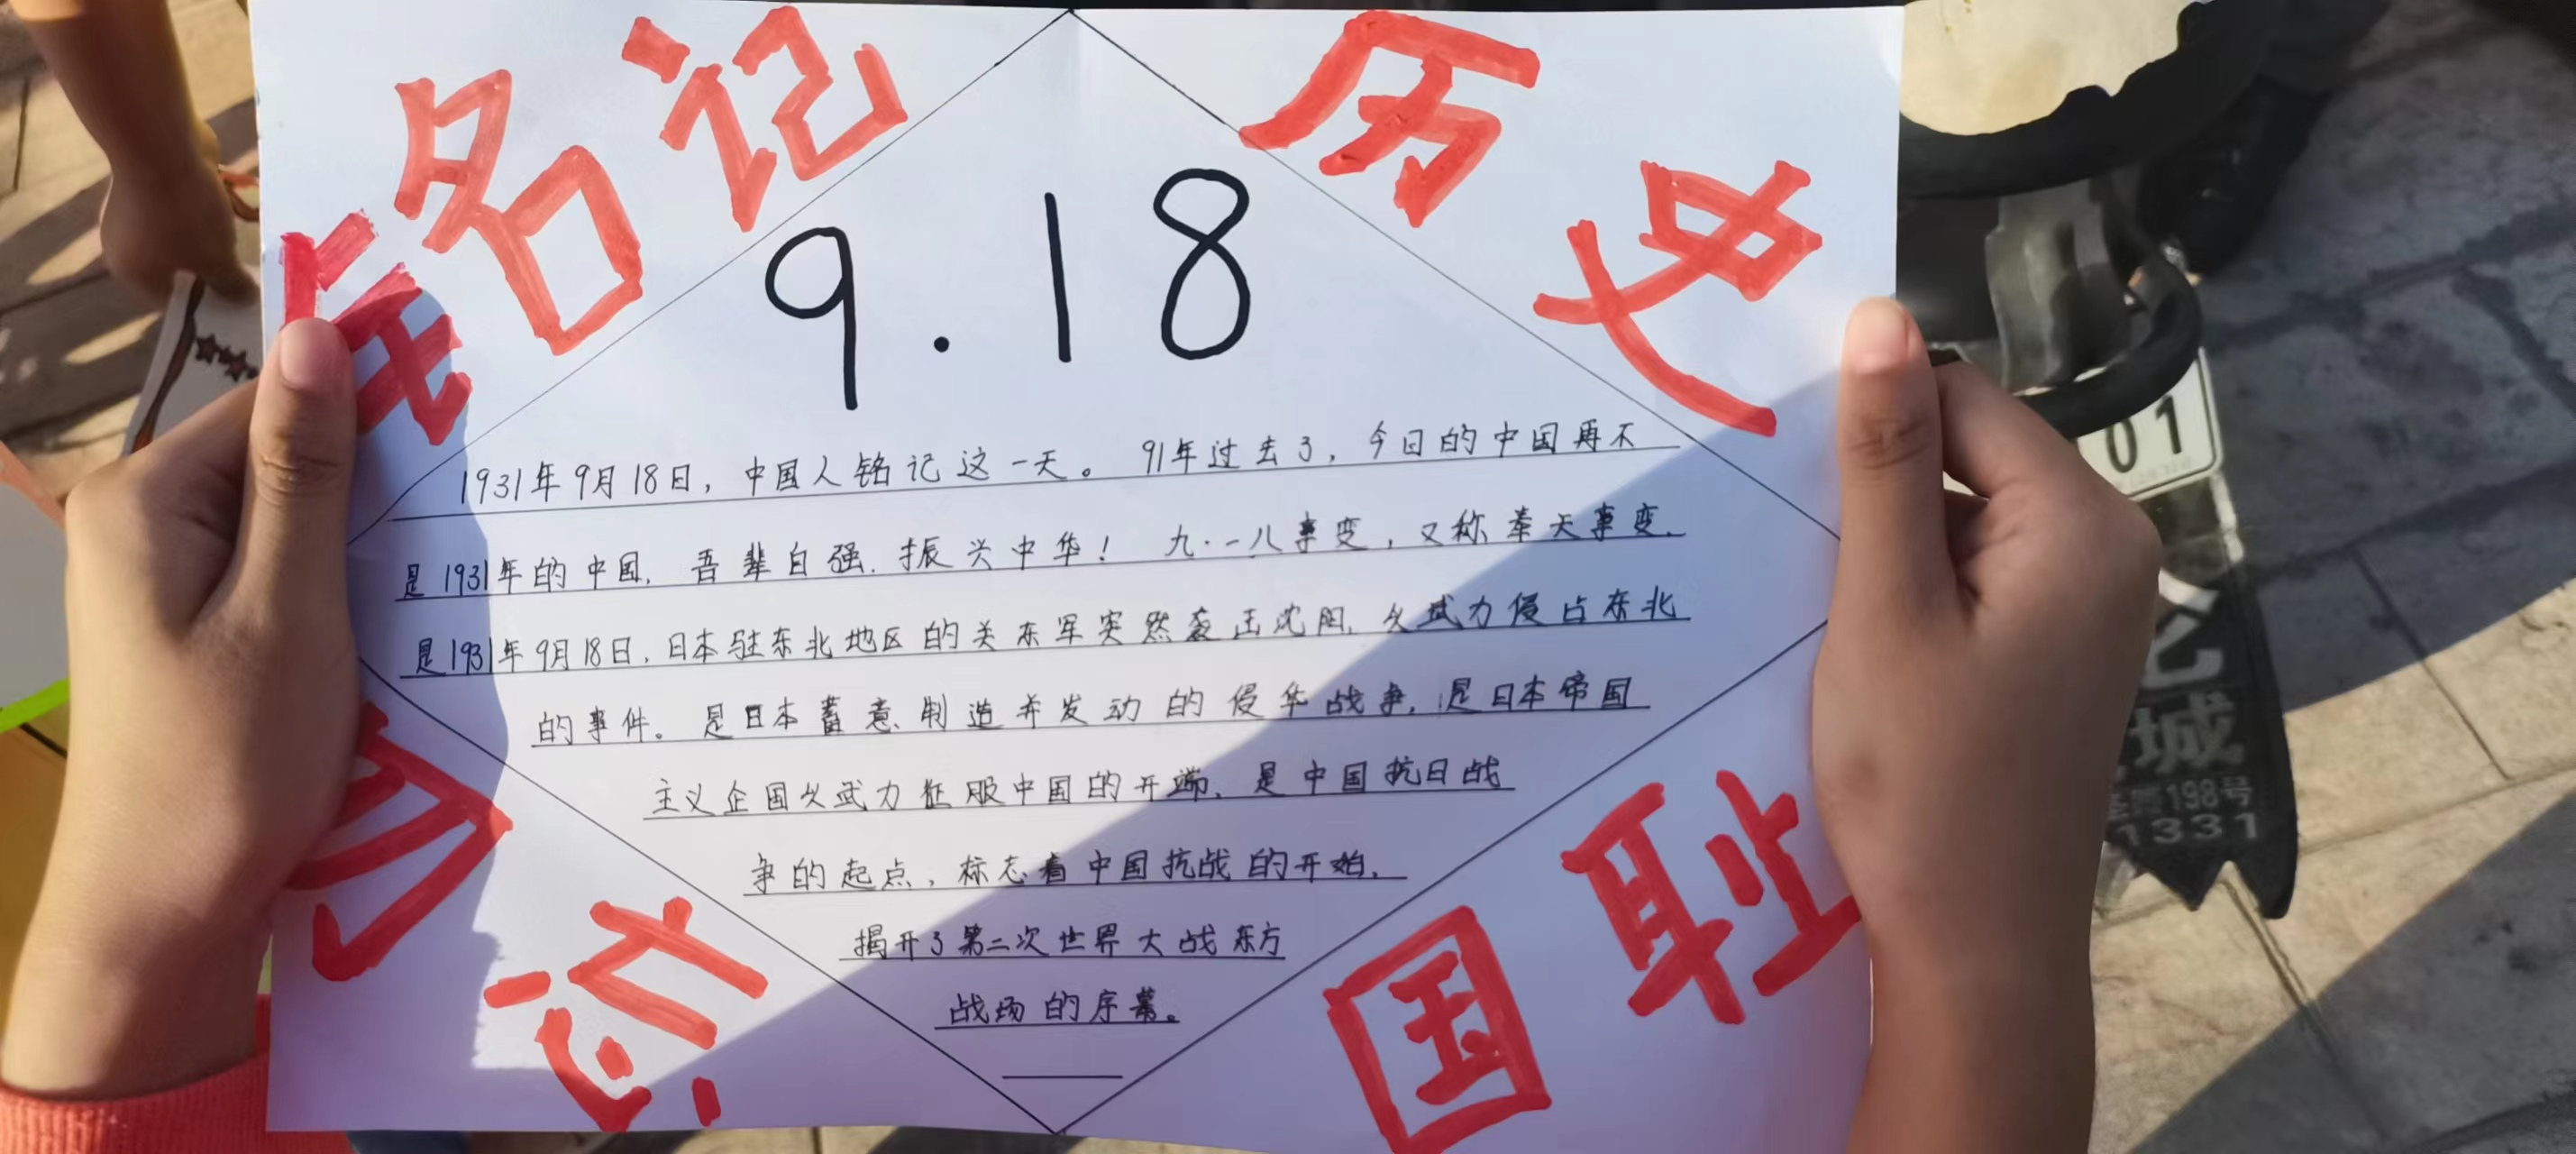 铭记
历史
9.18
1931年9月18日，中国人铭记这一天。91年过去了，今日的中国再不
是1931年的中国，吾辈自强．振兴中华！九·一八事变，又称奉天事变．
是1931年9月18日，日本驻东北地区的关东军突然袭击沈阳，以武力侵占东北
的事件。是日本蓄意制造并发动的侵华战争，是日本帝国
主义企国以武力征服中国的开端，是中国抗日战
争的起点，标志着中国抗战的开始．
揭开了第二次世界大战东方
战场的序幕。
勿忘
国耻
01
城
198号
1331